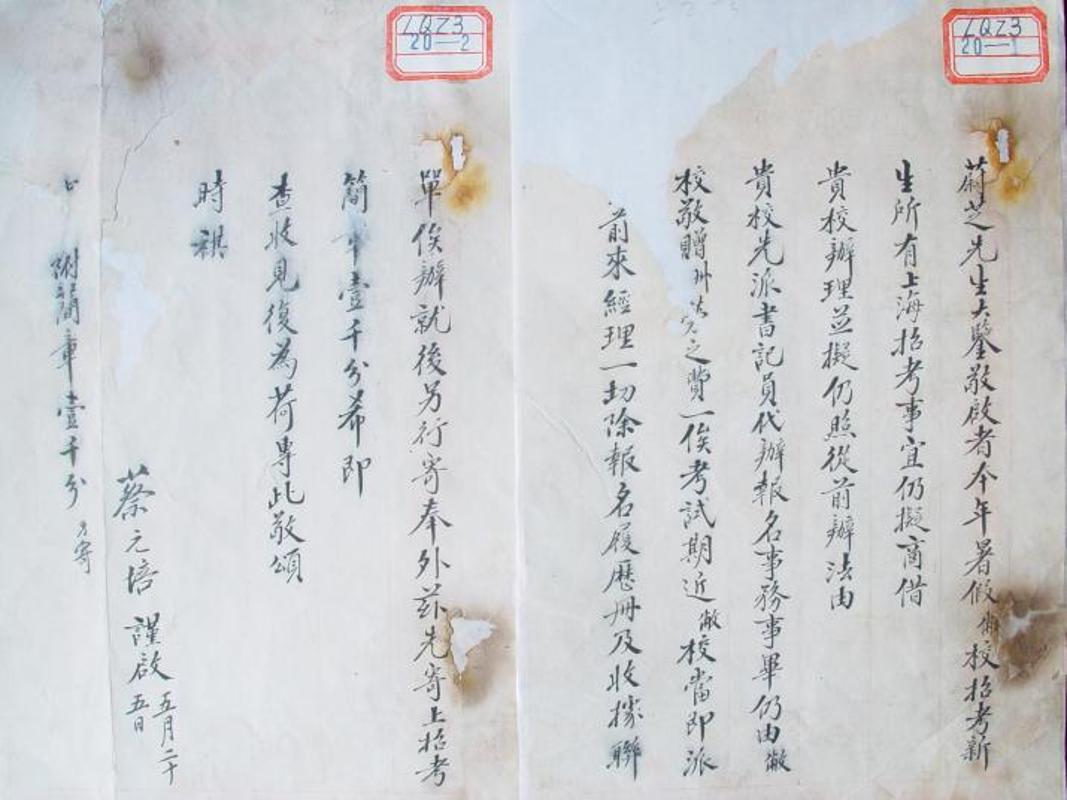 LQZ3
20—1
蔚芝先生大鑒敬啟者本年暑假敝校招考新
生所有上海招考事宜仍擬商借
貴校辦理並擬仍照從前辦法由
貴校先派書記員代辦報名事務事畢仍由敝
校敬贈之費一俟考試期近敝校當即派
前來經理一切除報名履歷冊及收據聯
LQZ3
20—2
單俟辦就後另行寄奉外茲先寄上招考
簡章壹千分希即
查收見復為荷專此敬頌
時祺
蔡元培 謹啟 五月二十
五日
附簡章壹千分 另寄